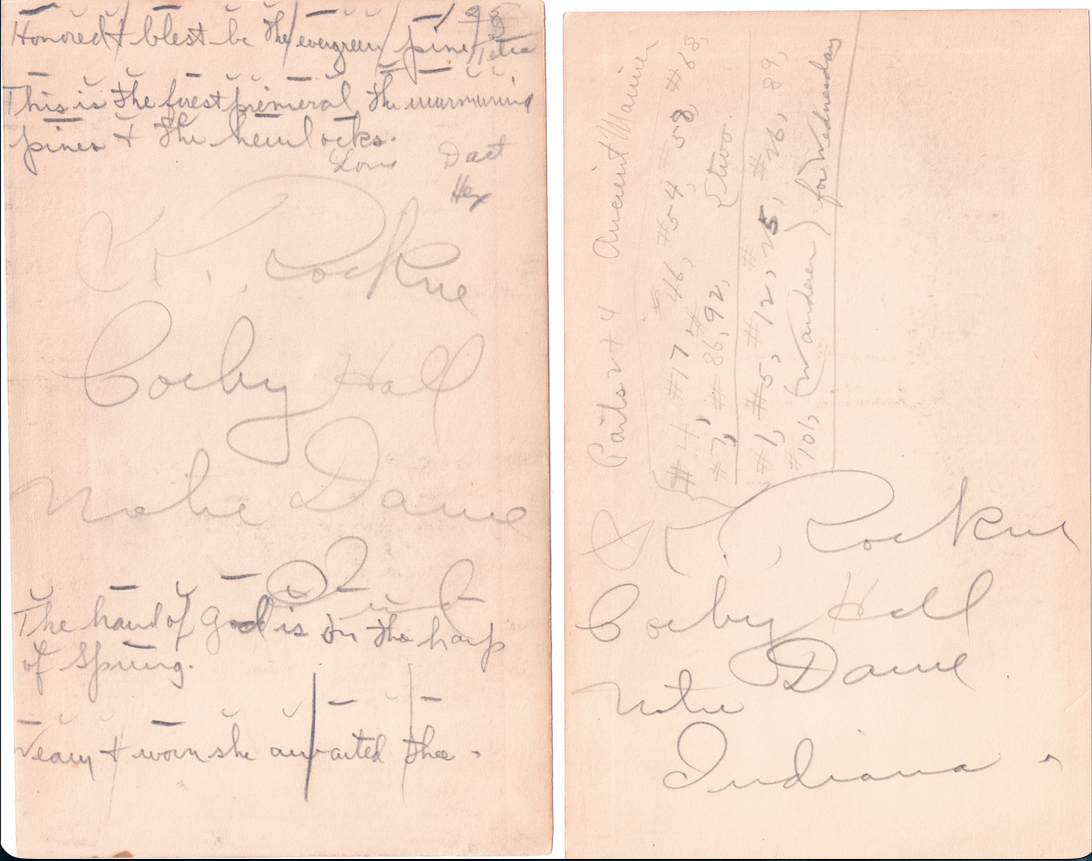 Honored & blest be the evergreen pine
This is the forest primeral, the murmuring
pines & the hemlocks.
Dact
Hex
K. Rockne
Corby Hall
Notre Dame
The hand of God is on the harp
of Spring.
Weary & worn she awaited thee.
Parts 2 + 4 Ancient Mariner
#4, #17, #46, #54, #58, #68,
#7, #86, 92, two.
#1, #5, #12, 25, #26, 89,
#101, (Wanderer) for Wednesday
K. Rockne
Corby Hall
Notre Dame
Indiana